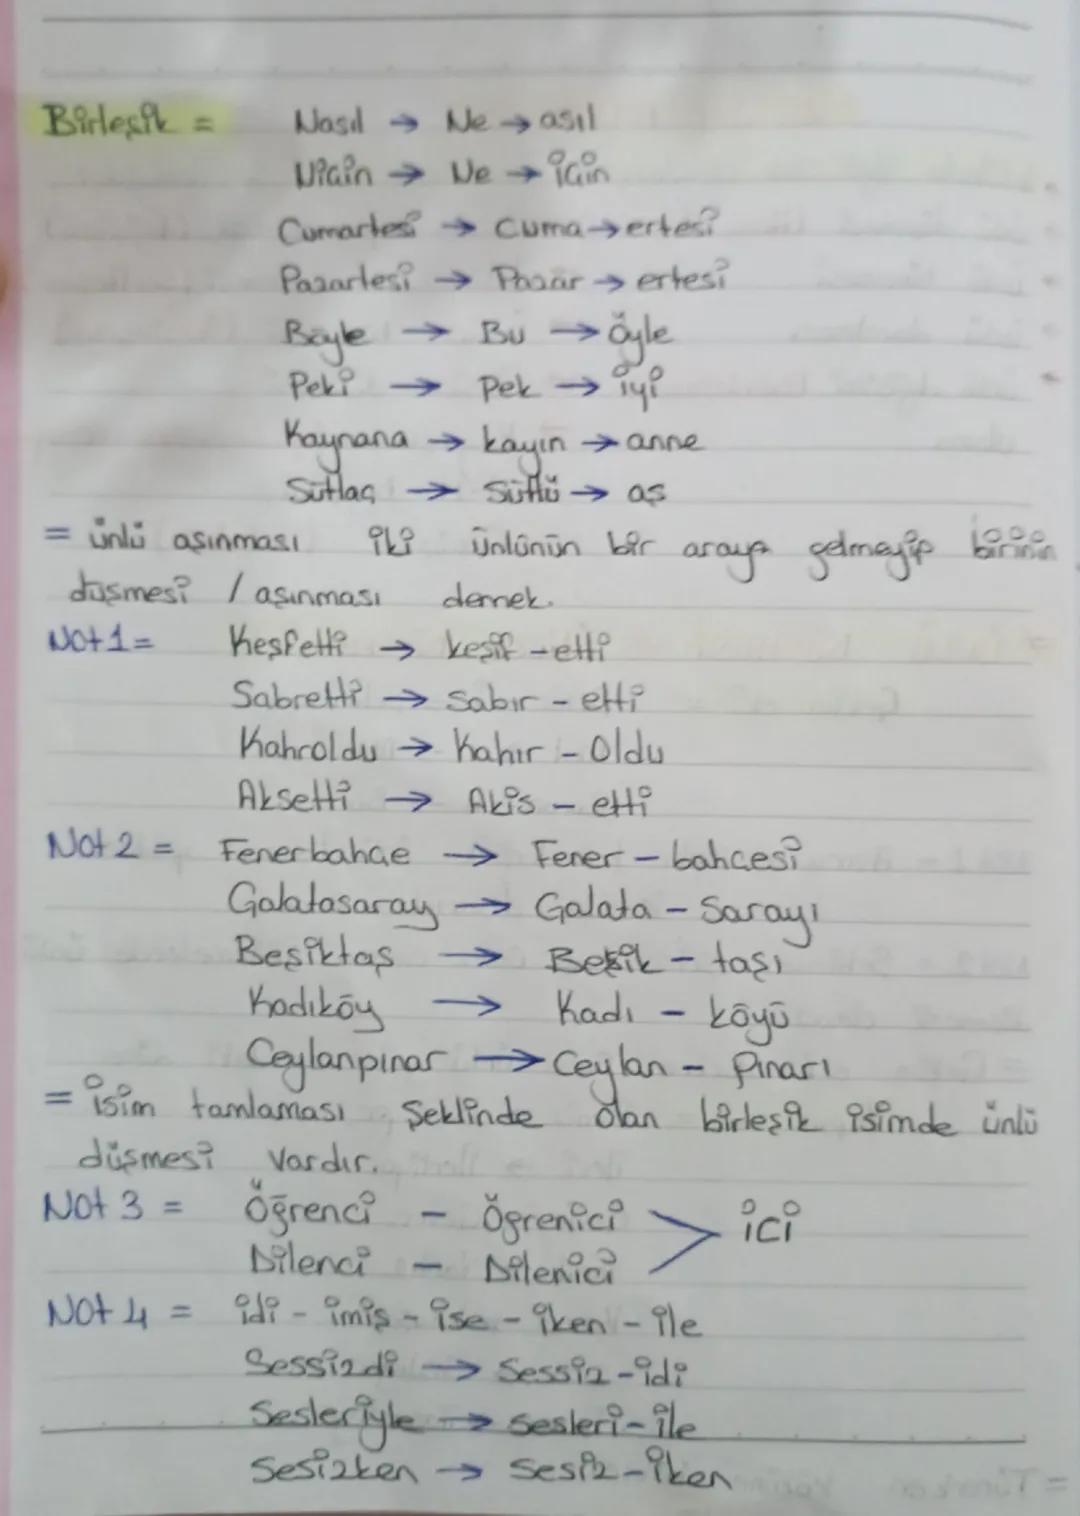 Birleşik = Nasıl → Ne → asıl
Niçin → Ne → için
Cumartesi → Cuma → ertesi
Pazartesi → Pazar → ertesi
Böyle → Bu → öyle
Peki → pek → iyi
Kaynana → kayın → anne
Sütlaç → Sütlü → aş
= ünlü aşınması iki ünlünün bir araya gelmeyip birinin
düşmesi / aşınması demek.
Not 1 = Keşfetti → keşif - etti
Sabretti → Sabır - etti
Kahroldu → Kahır - Oldu
Aksetti → Akis - etti
Not 2 = Fenerbahçe → Fener - bahçesi
Galatasaray → Galata - Sarayı
Beşiktaş → Beşik - taşı
Kadıköy → Kadı - köyü
Ceylanpınar → Ceylan - Pınarı
= isim tamlaması Şeklinde olan birleşik isimde ünlü
düşmesi Vardır.
Not 3 = Öğrenci - Öğrenici > ici
Dilenci - Dilenici
Not 4 = idi - imiş - ise - iken - ile
Sessizdi → Sessiz - idi
Sesleriyle → sesleri - ile
Sesizken → Sesiz - iken